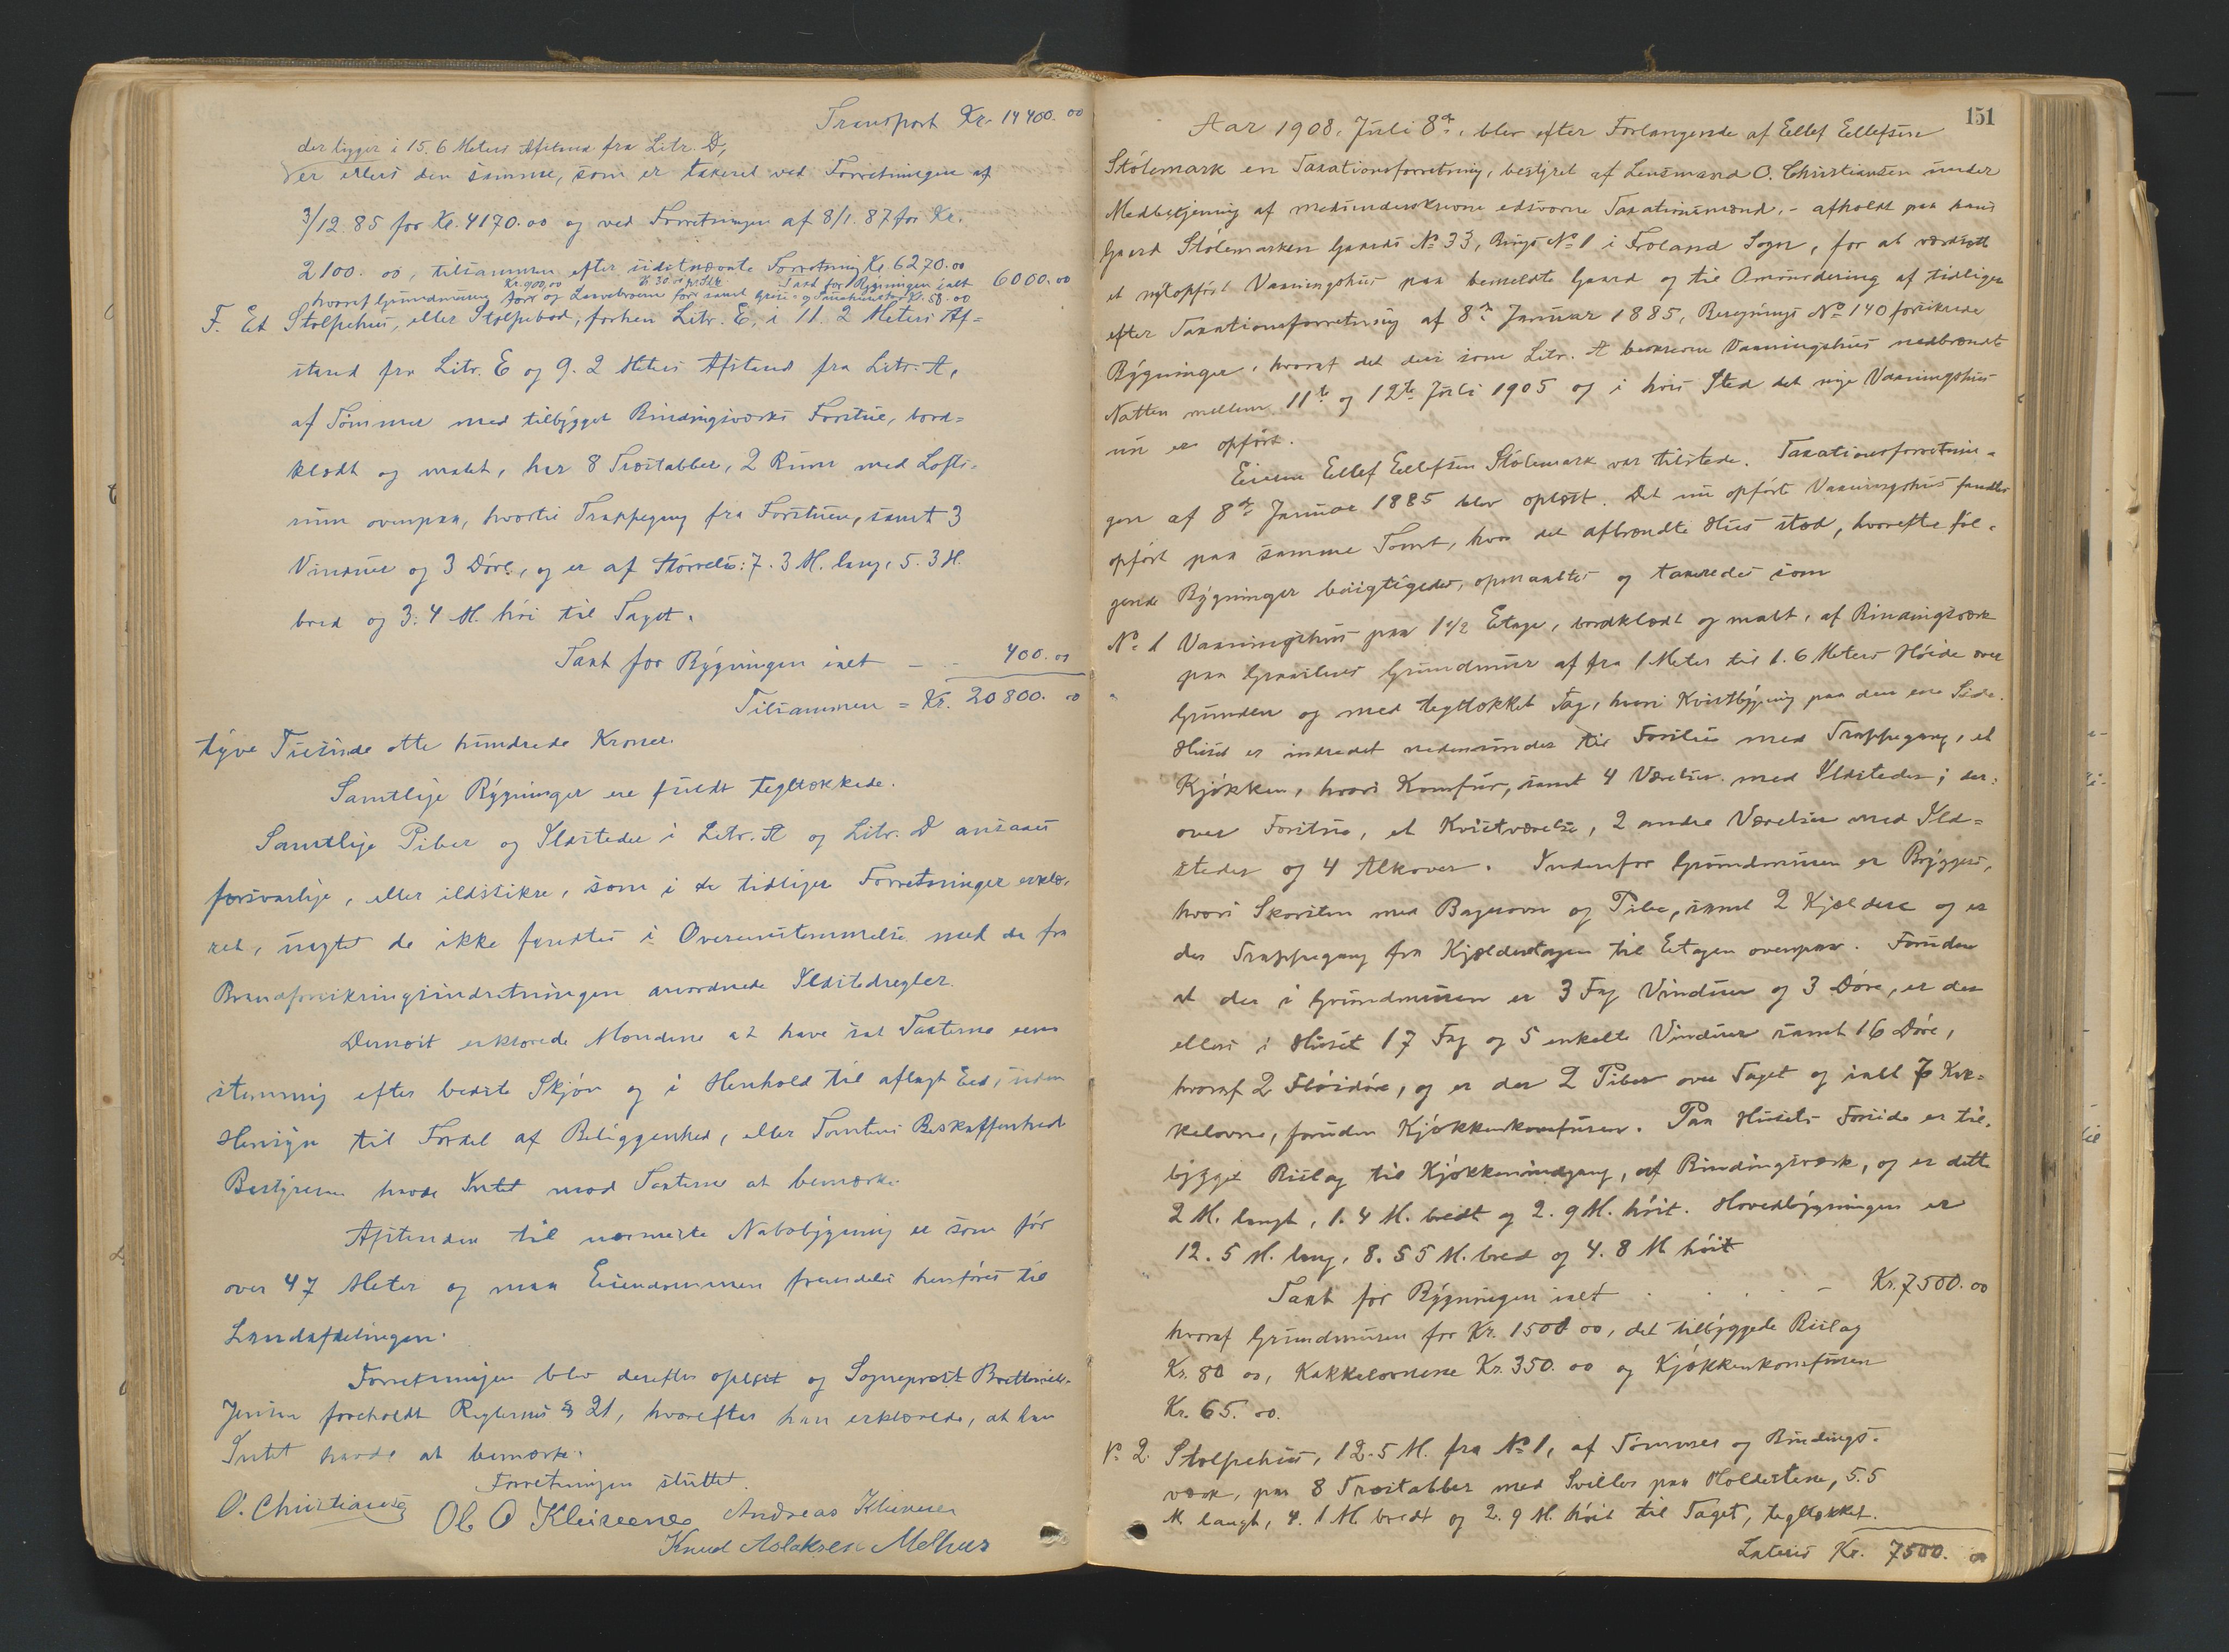 Transport Kr. 14400.00
der ligger i 15.6 Meters Afstand fra Litr. D,
er ellers den samme, som er takseret ved Forretningen af
3/12 85 for Kr. 4170.00 og ved Forretningen af 8/1. 87 for Kr.
2100.00, tilsammen efter sidstnævnte Forretning Kr. 6270.00
Kr. 900,00 Taxt for Bygningen ialt 6000.00
hvoraf Grundmuren for og Laavebroerne for samt Kr. 58.00
F. Et Stolpehus, eller Stolpebod, forhen Litr. E, i 11.2 Meters Af=
stand fra Litr. E og 9.2 Meters Afstand fra Litr. A,
af Tømmer med tilbygget Bindingsværks Forstue, bord=
klædt og malet, har 8 Træstabber, 2 Rum med Lofts=
rum ovenpaa, hvortil Trappegang fra Forstuen, samt 3
Vinduer og 3 Døre, og er af Størrelse: 7.3 M. lang, 5.3 M.
bred og 3.4 M. høi til Taget.
Taxt for Bygningen ialt - - 400.00
Tilsammen = Kr. 20800.00
tyve Tusinde otte hundrede Kroner.
Samtlige Bygninger ere fuldt tegltækkede.
Samtlige Piber og Ildsteder i Litr. A og Litr. D ansaaes
forsvarlige, eller ildssikre, som i de tidligere Forretninger erklæ=
ret, uagtet de ikke fandtes i Overensstemmelse med de fra
Brandforsikringsindretningen anordnede Ildstedregler.
Dernæst erklærede Mændene at have sat Taxterne eens
stemmig efter bedste Skjøn og i Henhold til aflagt Eed, uden
Hensyn til Fordel af Beliggenhed, eller Tomtens Beskaffenhed
Bestyreren havde Intet mod Taxterne at bemærke.
Afstanden til nærmeste Nabobygning er som før
over 47 Meter og maa Eiendommen fremdeles henføres til
Landafdelingen.
Forretningen blev derefter oplæst og Sogneprest
Jensen foreholdt Reglernes § 21, hvorefter han erklærede, at han
Intet havde at bemærke.
Forretningen sluttet.
O. Christiansen Ole O Kleiveene Andreas Kleivene
Knud Aslaksen Melhus
151
Aar 1908, Juli 8de, blev efter Forlangende af Ellef Ellefsen
Stølemark en Taxationsforretning, bestyret af Lensmand O. Christiansen under
Medbetjening af medunderskrevne edsvorne Taxationsmænd, - afholdt paa hans
Gaard Stølemarken Gaards No 33, Brugs No 1 i Froland Sogn, for at værdsætte
et nyopført Vaaningshus paa bemeldte Gaard og til Omvurdering af tidligere
efter Taxationsforretning af 8de Januar 1885, Beregnings No 140 forsikrede
Bygninger, hvoraf det deri som Litr. A beskrevne Vaaningshus nedbrændte
Natten mellem 11te og 12te Juli 1905 og i hvis Sted det nye Vaaningshus
nu er opført.
Eieren Ellef Ellefsen Stølemark var tilstede. Taxationsforretnin=
gen af 8de Januar 1885 blev oplæst. Det nu opførte Vaaningshus fandtes
opført paa samme Tomt, hvor det afbrændte Hus stod, hvorefter føl=
gende Bygninger besigtigedes, opmaaltes og taxeredes som
No 1 Vaaningshus paa 1 1/2 Etage, bordklædt og malt, af Bindingsværk
paa Graastens Grundmur af fra 1 Meter til 1.6 Meters Høide over
Grunden og med tegltækket Tag, hvori Kvistbygning paa den ene Side.
Huset er indredet nedenunder til Forstue med Trappegang, et
Kjøkken, hvori Komfur, samt 4 Værelser med Ildsteder; der=
over Forstue, et Kvistværelse, 2 andre Værelser med Ild=
steder og 4 Alkover. Indenfor Grundmuren er Bryggers,
hvori Skorsten med Bagerovn og Pibe, samt 2 Kjældere og er
der Trappegang fra Kjælderetagen til Etagen ovenpaa. Foruden
at der i Grundmuren er 3 Fag Vinduer og 3 Døre, er der
ellers i Huset 17 Fag og 5 enkelte Vinduer samt 16 Døre,
hvoraf 2 Fløidøre, og er der 2 Piber over Taget og ialt 7 Kak=
kelovne, foruden Kjøkkenkomfuren. Paa Husets Forside er til=
bygget Bislag til Kjøkkenindgang, af Bindingsværk, og er dette
2 M. langt, 1.4 M. bredt og 2.9 M. høit. Hovedbygningen er
12.5 M. lang, 8.55 M. bred og 4.8 M høit
Taxt for Bygningen ialt . . . - Kr. 7500.00
hvoraf Grundmuren for Kr. 1500 00, det tilbyggede Bislag
Kr. 80 00, Kakkelovnene Kr. 350.00 og Kjøkkenkomfuren
Kr. 65.00.
No 2. Stolpehus, 12.5 M. fra No 1, af Tømmer og Bindings=
værk, paa 8 Træstabber med Sviller paa Holdestene, 5.5
M langt, 4.1 M bredt og 2.9 M. høit til Taget, tegltækket.
Lateris Kr. 7500.00